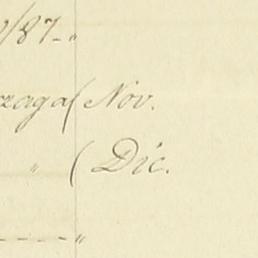 /87-"
zaga( Nov.
" ( Dic.
- - - - "